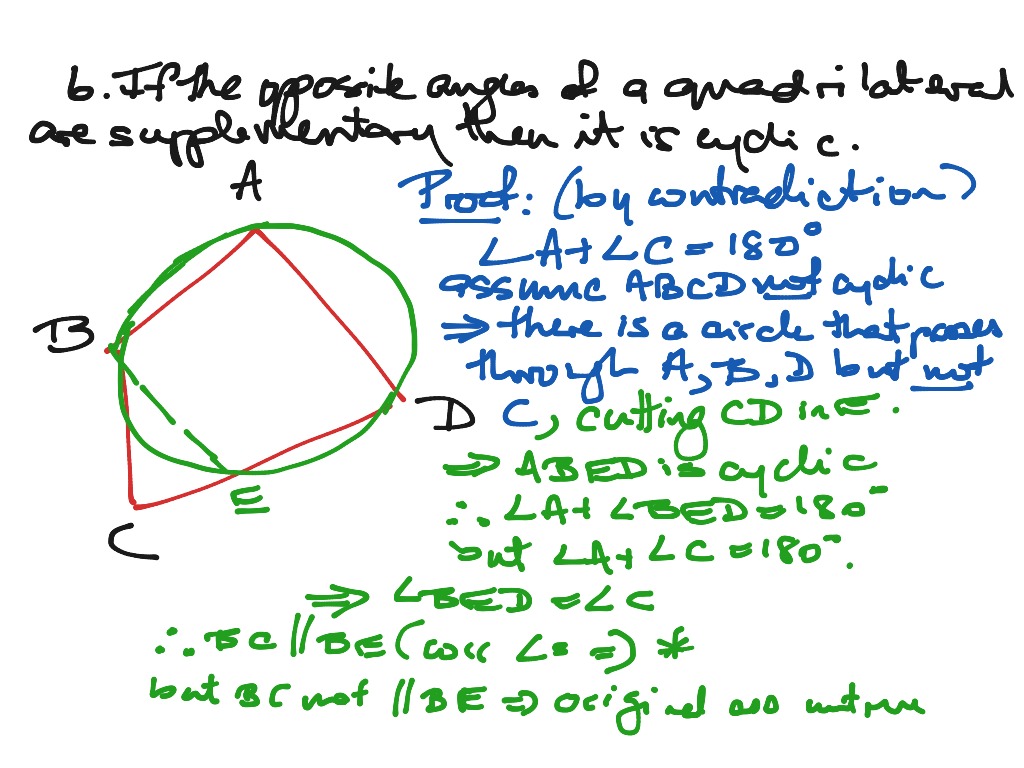 6. If the opposite angles of a quadrilateral
are supplementary then it is cyclic.
A
Proof: (by contradiction)
∠A + ∠C = 180°
assume ABCD not cyclic
B
⇒ there is a circle that passes
through A, B, D but not
D
C, cutting CD in E.
⇒ ABED is cyclic
E
∴ ∠A + ∠BED = 180°
C
but ∠A + ∠C = 180°.
⇒ ∠BED = ∠C
∴ BC // BE (corr ∠s =) *
but BC not // BE ⇒ original ass untrue